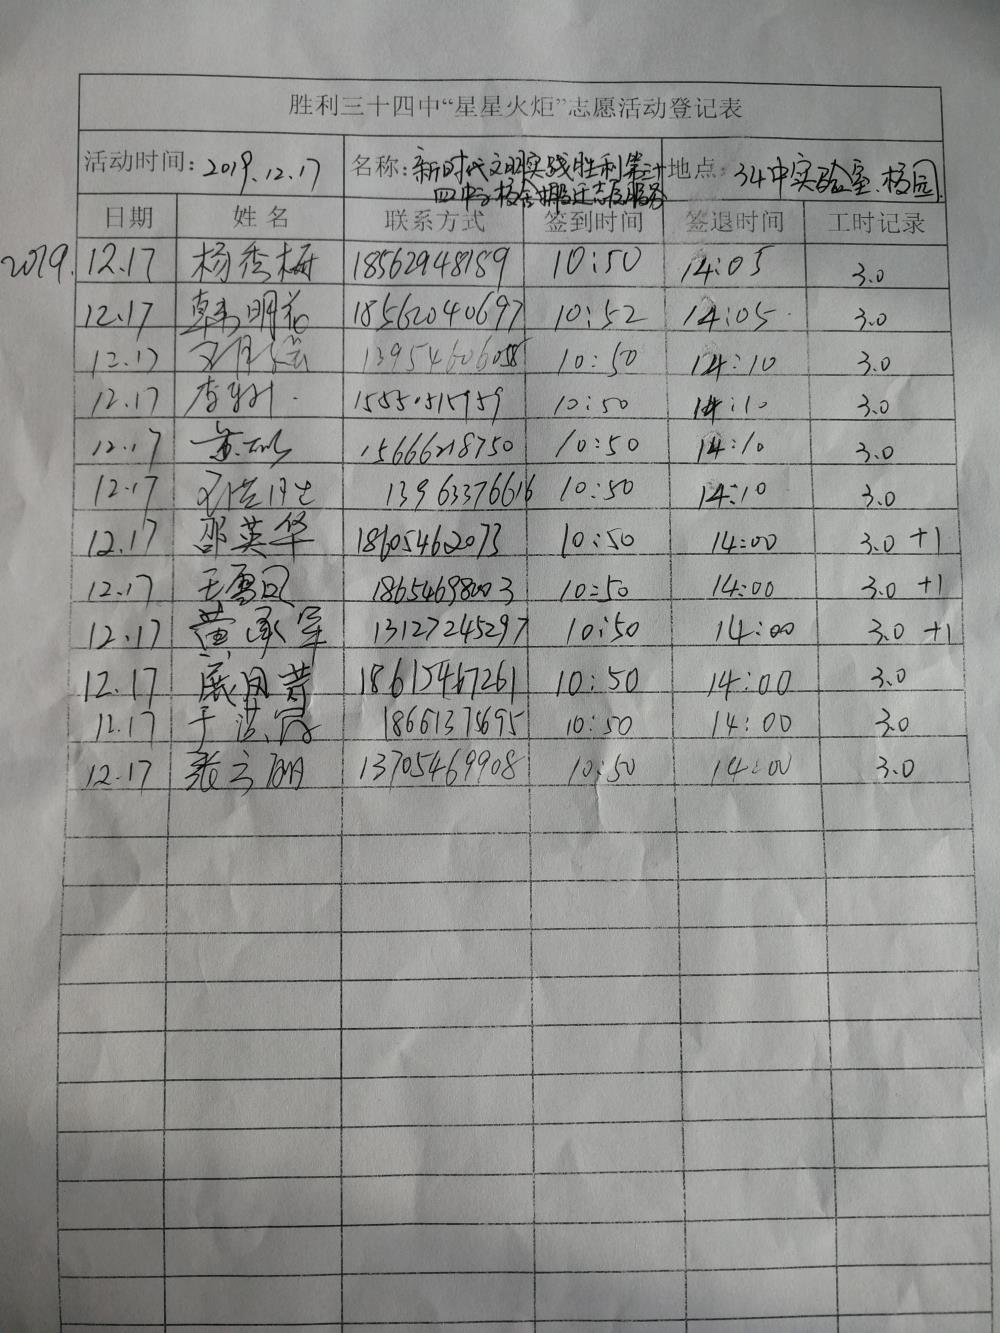 胜利三十四中“星星火炬”志愿活动登记表
活动时间: 2019.12.17 名称: 新时代文明实践胜利第三十 地点: 34中实验室、校园
四中学校舍搬迁志愿服务
日期 姓名 联系方式 签到时间 签退时间 工时记录
2019. 12.17 杨秀梅 18562948189 10:50 14:05 3.0
12.17 韩明花 18562040697 10:52 14:05 3.0
12.17 13954606058 10:50 14:10 3.0
12.17 10:50 14:10 3.0
12.17 15666218750 10:50 14:10 3.0
12.17 13963376616 10:50 14:10 3.0
12.17 邵英华 18605462073 10:50 14:00 3.0 +1
12.17 王雪凤 18654698003 10:50 14:00 3.0 +1
12.17 黄承军 13127245297 10:50 14:00 3.0 +1
12.17 展月芳 18615467261 10:50 14:00 3.0
12.17 18661375695 10:50 14:00 3.0
12.17 张立朋 13705469908 10:50 14:00 3.0